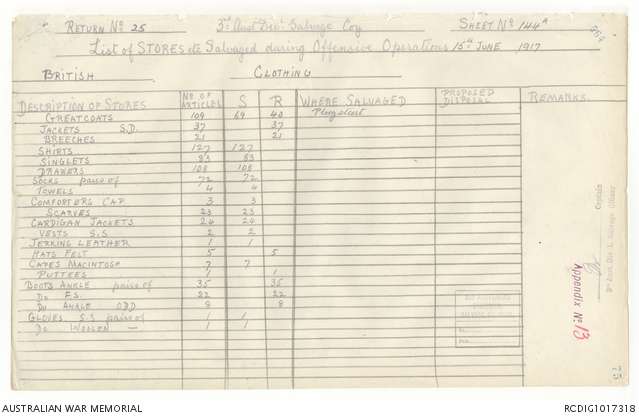 RETURN No 25 3rd Aust Divl Salvage Coy SHEET No 144A
List of STORES etc Salvaged during Offensive Operations 15th JUNE 1917
BRITISH CLOTHING
DESCRIPTION OF STORES No OF ARTICLES S R WHERE SALVAGED PROPOSED DISPOSAL REMARKS
GREATCOATS 109 69 40 Ploegsteert
JACKETS S.D. 37 37
BREECHES 21 21
SHIRTS 127 127
SINGLETS 83 83
DRAWERS 108 108
SOCKS pairs of 72 72
TOWELS 4 4
COMFORTERS CAP 3 3
SCARVES 23 23
CARDIGAN JACKETS 24 24
VESTS S.S 2 2
JERKINS LEATHER 1 1
HATS FELT 5 5
CAPES MACINTOSH 7 7
PUTTEES 1 1
BOOTS ANKLE pairs of 35 35
Do F.S. 22 22
Do ANKLE ODD 8 8
GLOVES S.S pairs of 1 1
Do WOOLEN — 1 1
Captain
3rd Aust. Div. L. Salvage Officer
Appendix No 13
75
AUSTRALIAN WAR MEMORIAL RCDIG1017318